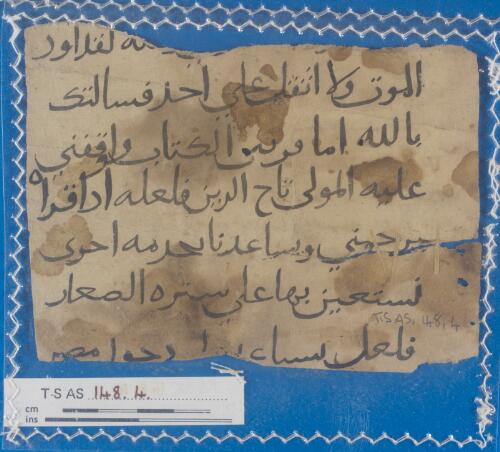 لقد اود
الموت ولا اثقل على احد فسالتك
بالله اما قريت الكتاب واقفني
عليه المولى تاج الدين فلعله اذا قراه
يرحمني وساعدنا بخدمه اخرى
نستعين بها على ستره الصغار
فلعل
T-S AS. 148.4
T-S AS 148.4.
cm
ins